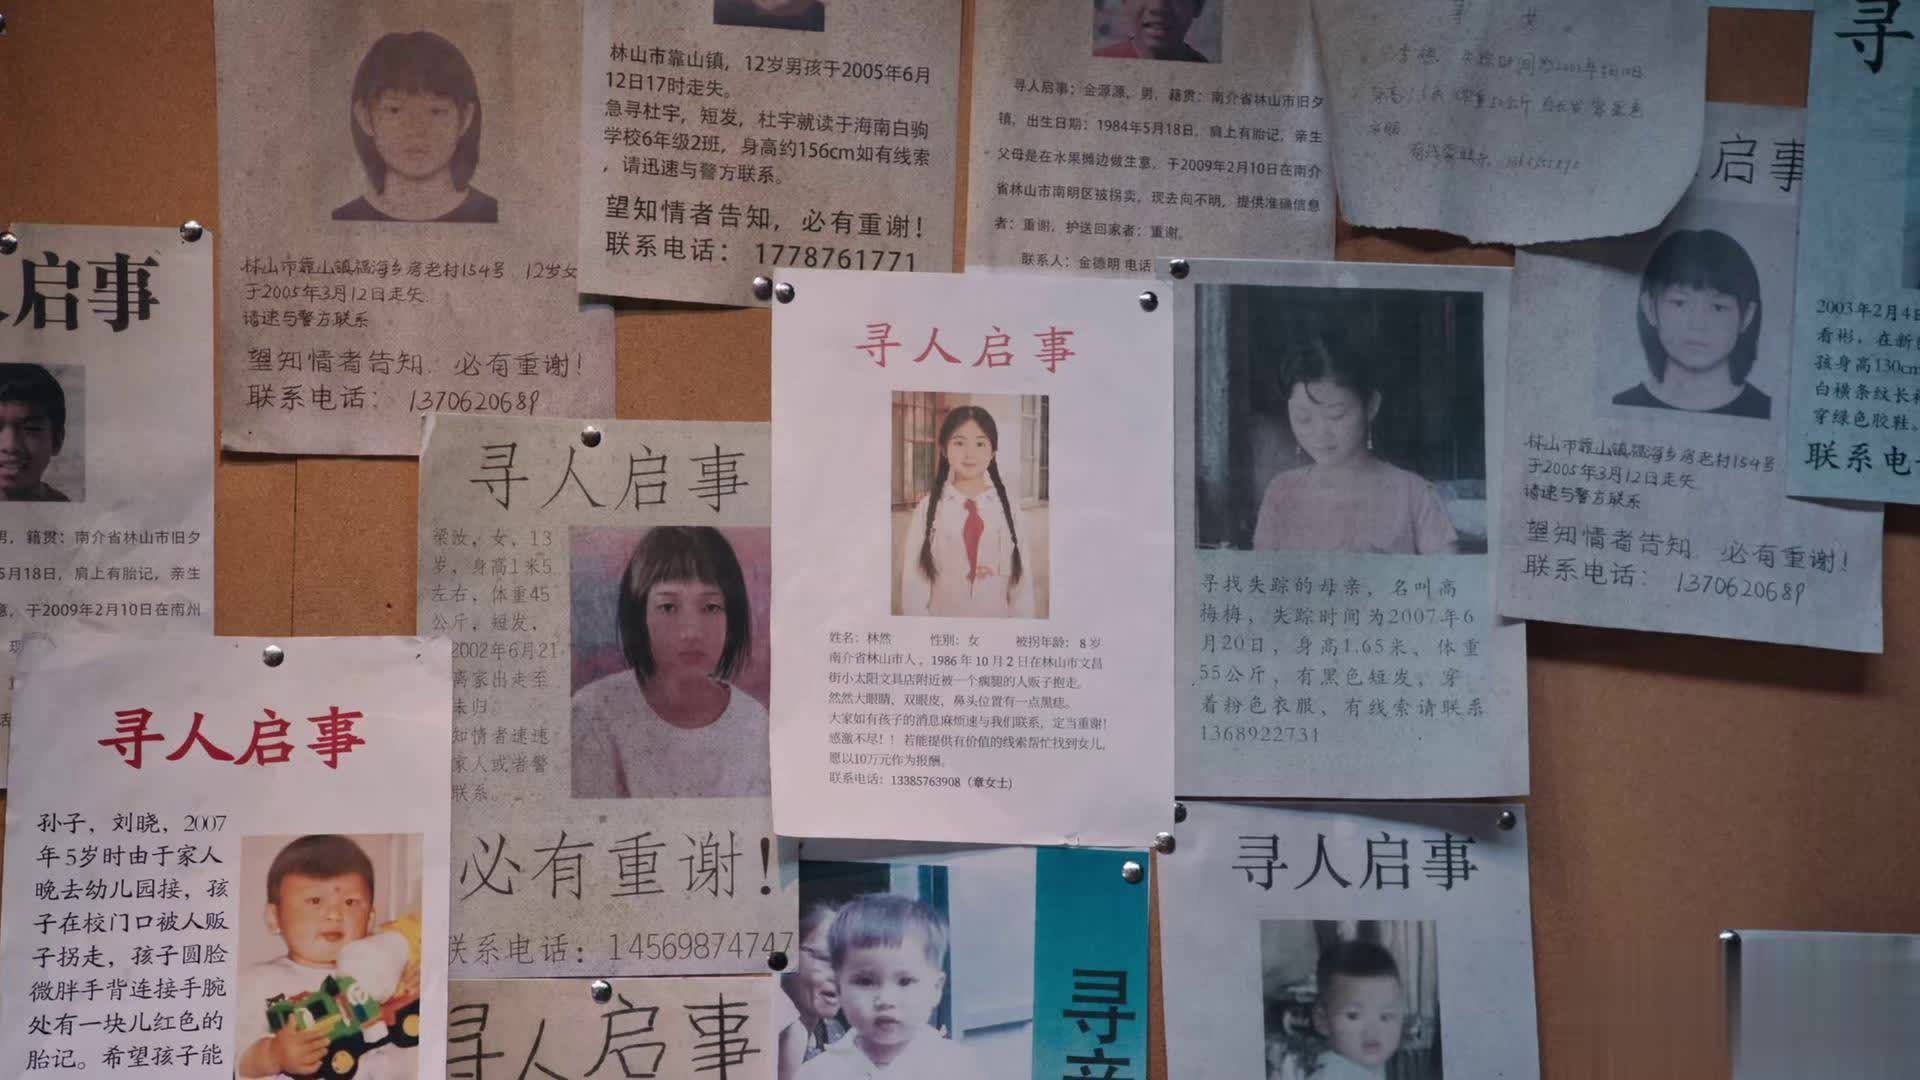 启事
男，籍贯：南介省林山市旧夕
5月18日，肩上有胎记，亲生
于2009年2月10日在南州
林山市靠山镇福海乡房老村154号 12岁女
于2005年3月12日走失
请速与警方联系
望知情者告知，必有重谢！
联系电话： 1370620689
林山市靠山镇，12岁男孩于2005年6月
12日17时走失。
急寻杜宇，短发，杜宇就读于海南白驹
学校6年级2班，身高约156cm如有线索
，请迅速与警方联系。
望知情者告知，必有重谢！
联系电话： 1778761771
寻人启事：金源源，男，籍贯：南介省林山市旧夕
镇，出生日期：1984年5月18日，肩上有胎记，亲生
父母是在水果摊边做生意，于2009年2月10日在南介
省林山市南明区被拐卖，现去向不明，提供准确信息
者：重谢，护送回家者：重谢。
联系人：金德明 电话
启事
林山市靠山镇福海乡房老村154号
于2005年3月12日走失
请速与警方联系
望知情者告知，必有重谢！
联系电话： 1370620689
寻
2003年2月4日
看彬，在新
孩身高130cm
白横条纹长
穿绿色胶鞋。
联系电
寻人启事
孙子，刘晓，2007
年5岁时由于家人
晚去幼儿园接，孩
子在校门口被人贩
子拐走，孩子圆脸
微胖手背连接手腕
处有一块儿红色的
胎记。希望孩子能
寻人启事
梁汝，女，13
岁，身高1米5
左右，体重45
公斤，短发，
2002年6月21
离家出走至
未归。
知情者速速
家人或者警
联系。
必有重谢！
联系电话：14569874747
寻人启事
姓名：林然 性别：女 被拐年龄：8岁
南介省林山市人，1986年10月2日在林山市文昌
街小太阳文具店附近被一个瘸腿的人贩子抱走。
然然大眼睛，双眼皮，鼻头位置有一点黑痣。
大家如有孩子的消息麻烦速与我们联系，定当重谢！
感激不尽！！若能提供有价值的线索帮忙找到女儿，
愿以10万元作为报酬。
联系电话：13385763908（章女士）
寻找失踪的母亲，名叫高
梅梅，失踪时间为2007年6
月20日，身高1.65米、体重
55公斤，有黑色短发，穿
着粉色衣服、有线索请联系
1368922731
寻人启事
寻
寻人启事